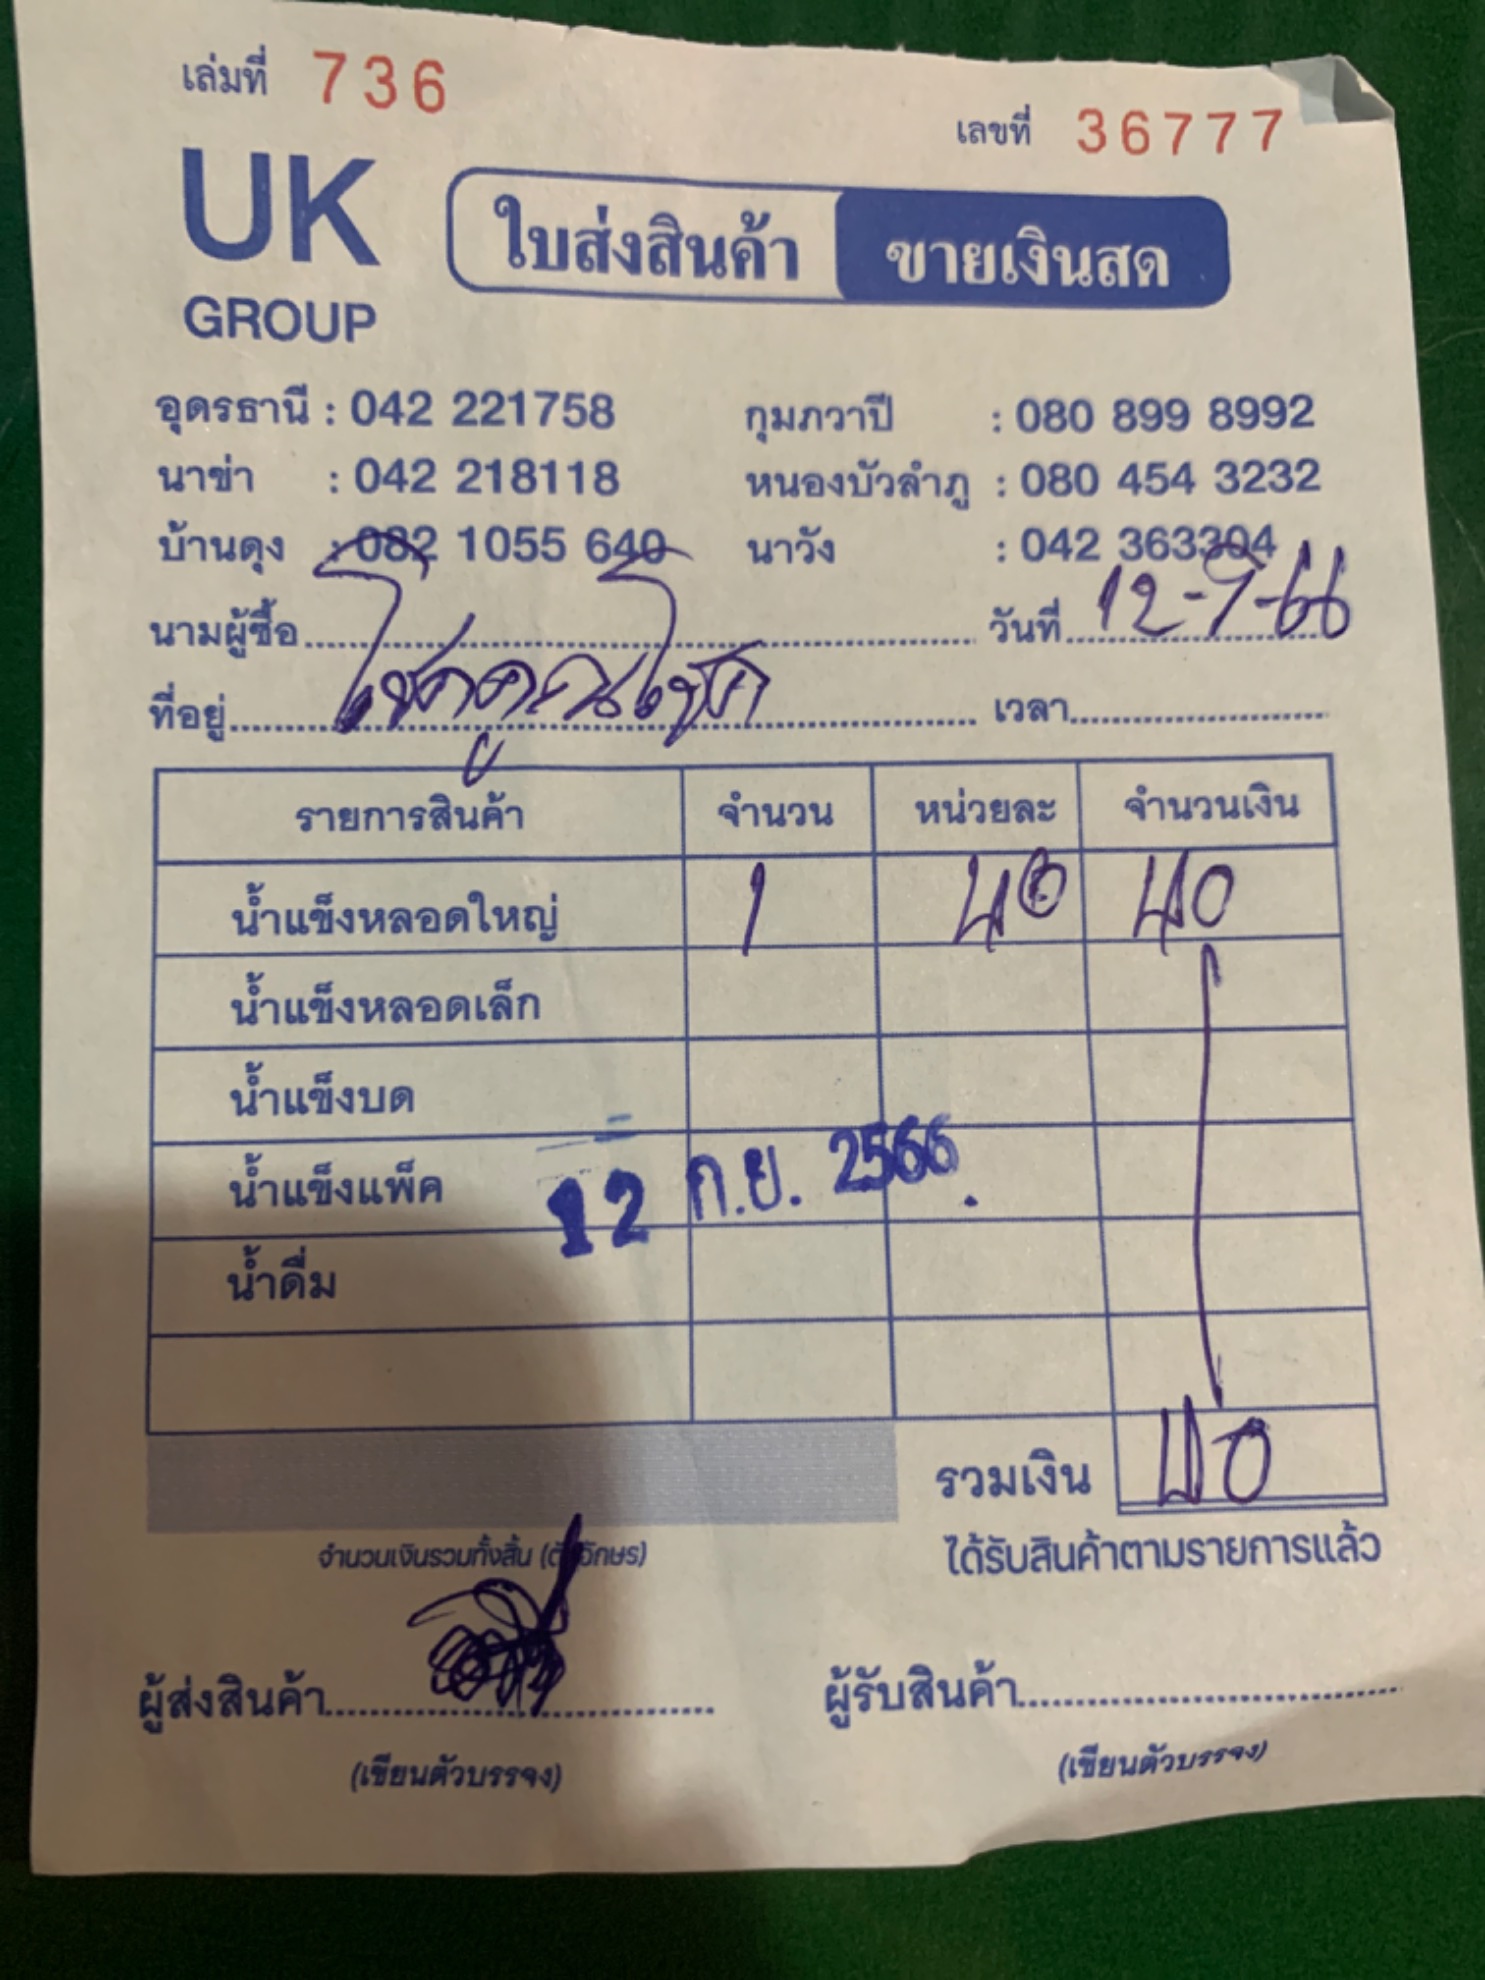 เล่มที่ 736
เลขที่ 36777
UK GROUP
ใบส่งสินค้า ขายเงินสด
อุดรธานี : 042 221758 กุมภวาปี : 080 899 8992
นาข่า : 042 218118 หนองบัวลำภู : 080 454 3232
บ้านดุง : 082 1055 640 นาวัง : 042 363304
นามผู้ซื้อ วันที่ 12-9-66
ที่อยู่ โชคคูณโชค เวลา
รายการสินค้า จำนวน หน่วยละ จำนวนเงิน
น้ำแข็งหลอดใหญ่ 1 40 40
น้ำแข็งหลอดเล็ก
น้ำแข็งบด
น้ำแข็งแพ็ค
12 ก.ย. 2566
น้ำดื่ม
รวมเงิน 40
จำนวนเงินรวมทั้งสิ้น (ตัวอักษร) ได้รับสินค้าตามรายการแล้ว
ผู้ส่งสินค้า ผู้รับสินค้า
(เขียนตัวบรรจง) (เขียนตัวบรรจง)